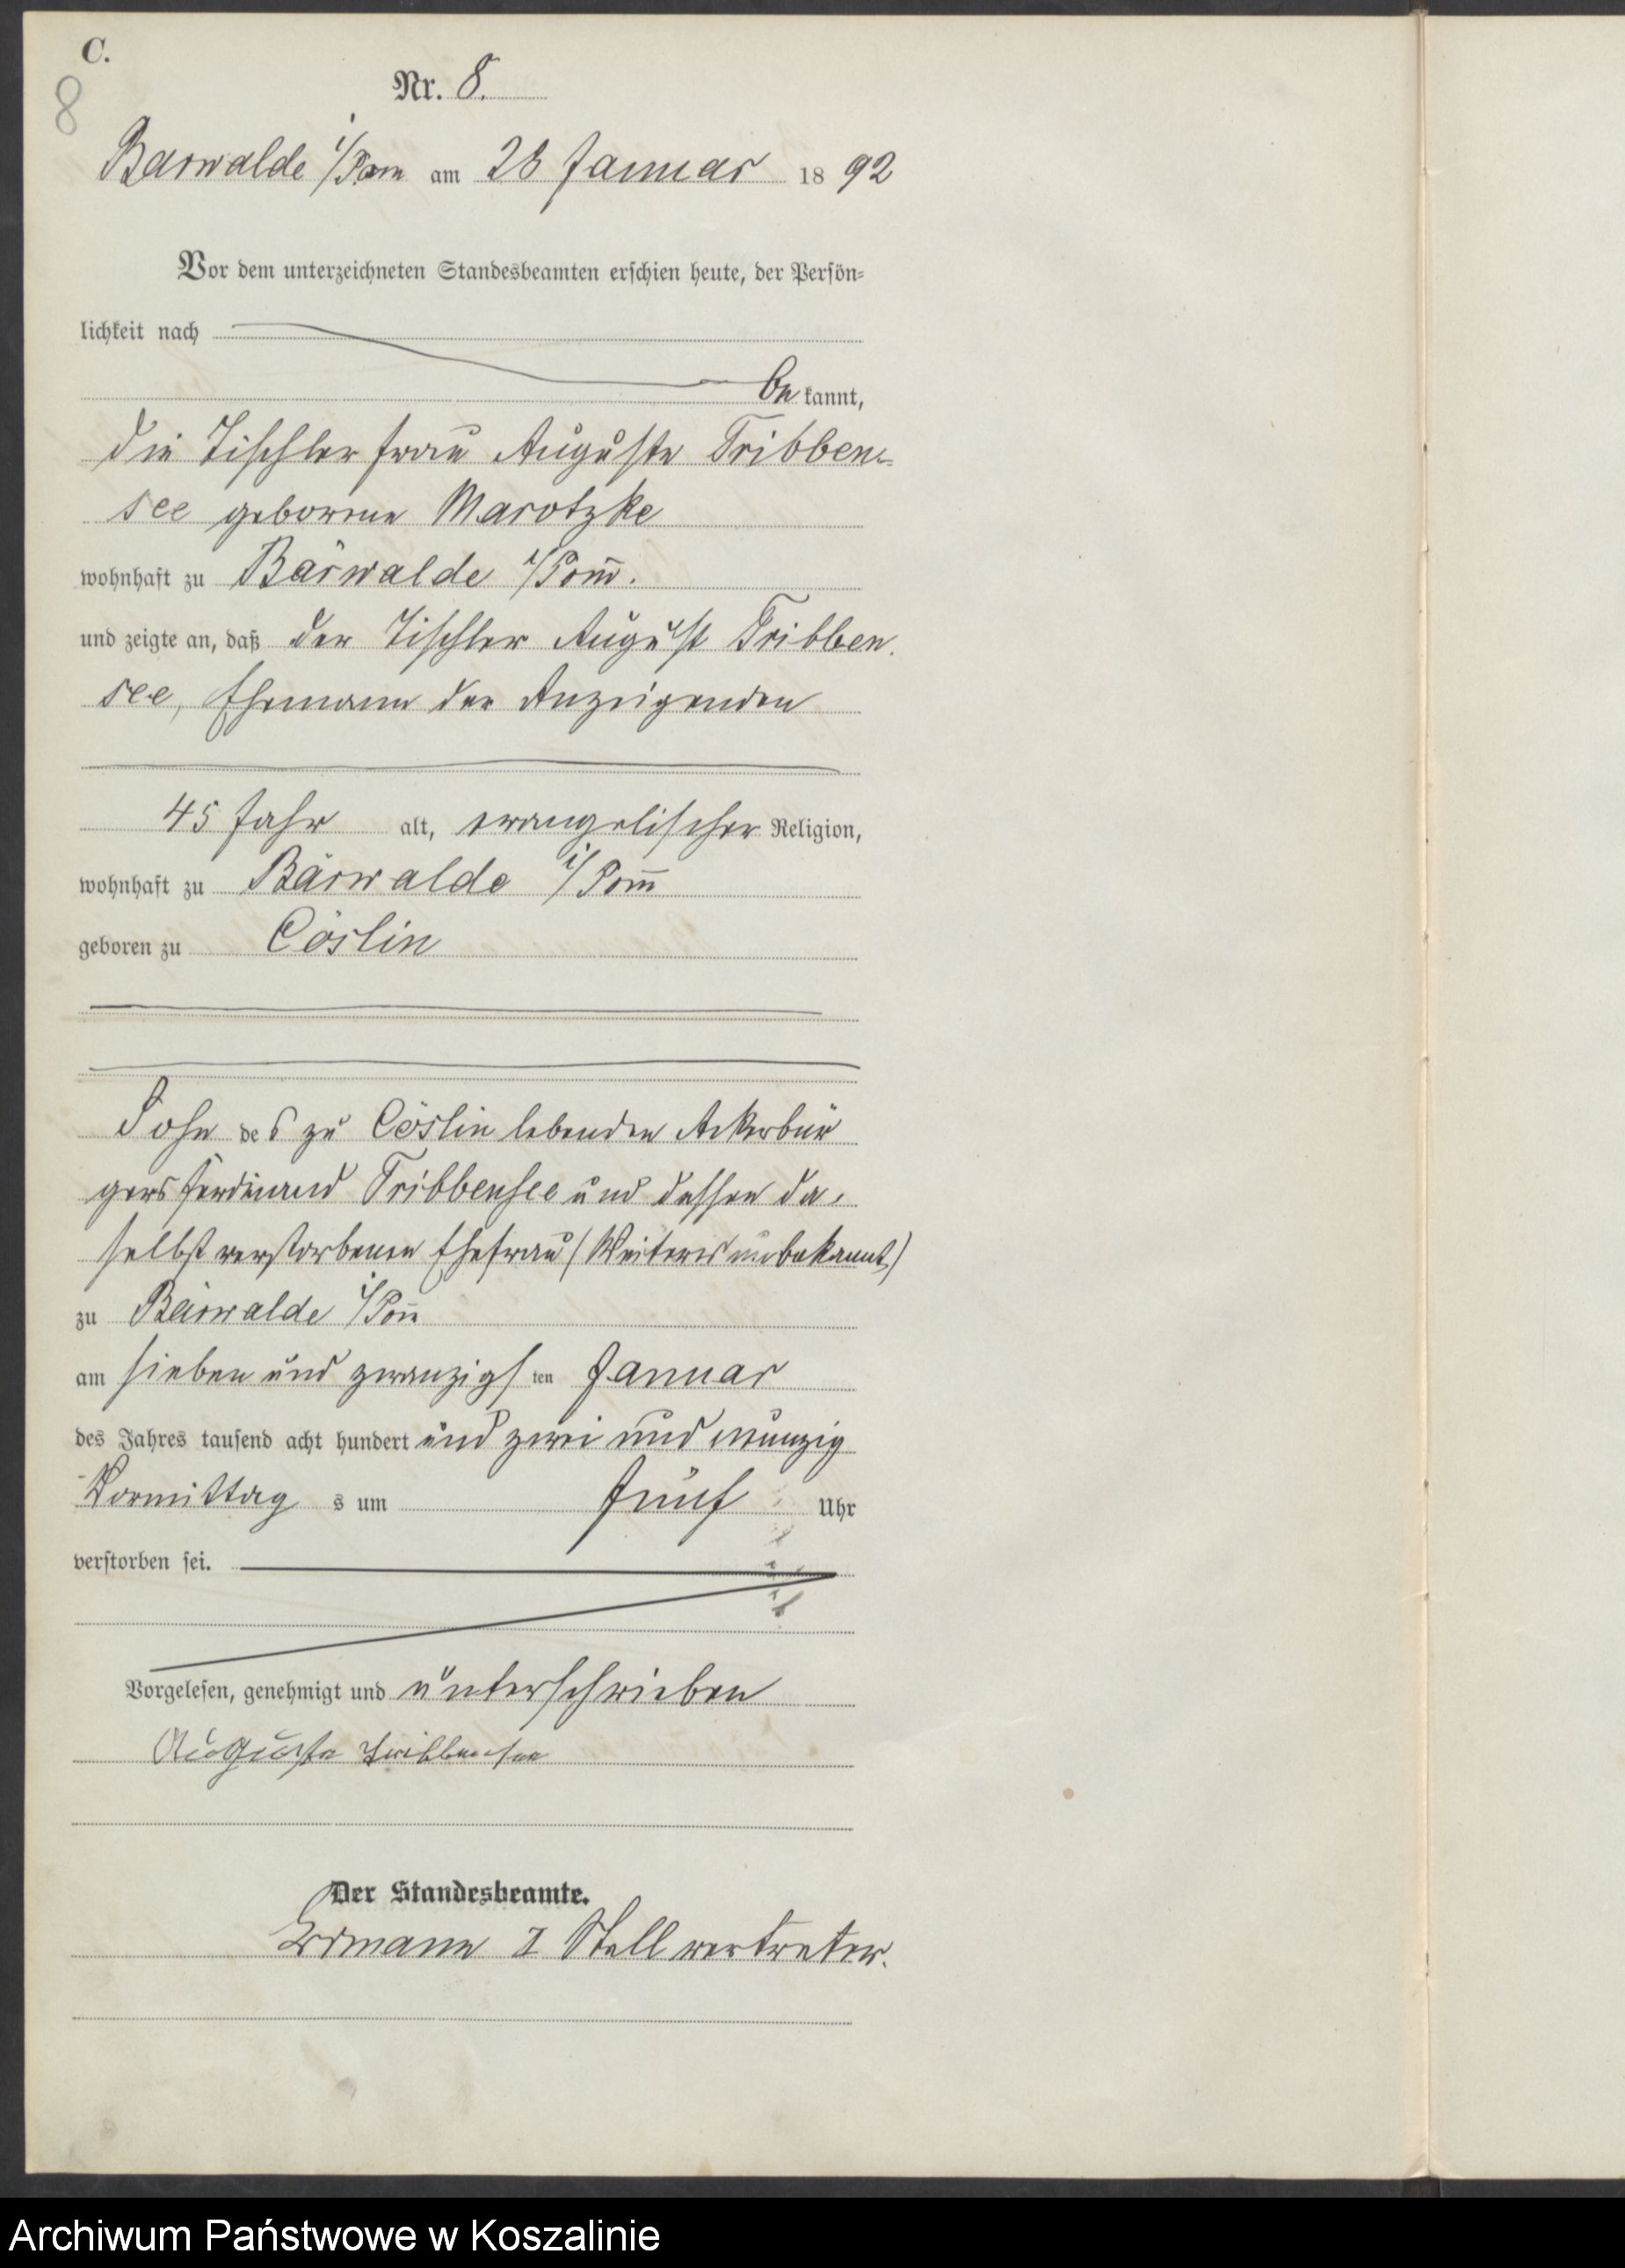 C.
8
Nr. 8.
Bärwalde i/Pom am 28 Januar 1892
Vor dem unterzeichneten Standesbeamten erschien heute, der Persön=
lichkeit nach
bekannt,
die Tischlerfrau Auguste Tribben=
see geborene Marotzke
wohnhaft zu Bärwalde i/Pom̅.
und zeigte an, daß der Tischler August Tribben.
see, Ehemann der Anzeigenden
45 Jahr alt, evangelischer Religion,
wohnhaft zu Bärwalde i/Pom̅
geboren zu Cöslin
Sohn des zu Cöslin lebenden Ackerbür
gers Ferdinand Tribbensee und dessen da=
selbst verstorbenen Ehefrau (Weiteres unbekannt)
zu Bärwalde i/Pom̅
am sieben und zwanzigsten Januar
des Jahres tausend acht hundert und zwei und neunzig
Vormittags um fünf Uhr
verstorben sei.
Vorgelesen, genehmigt und unterschrieben
Auguste Tribbensee
Der Standesbeamte.
Erdmann I Stellvertreter.
Archiwum Państwowe w Koszalinie